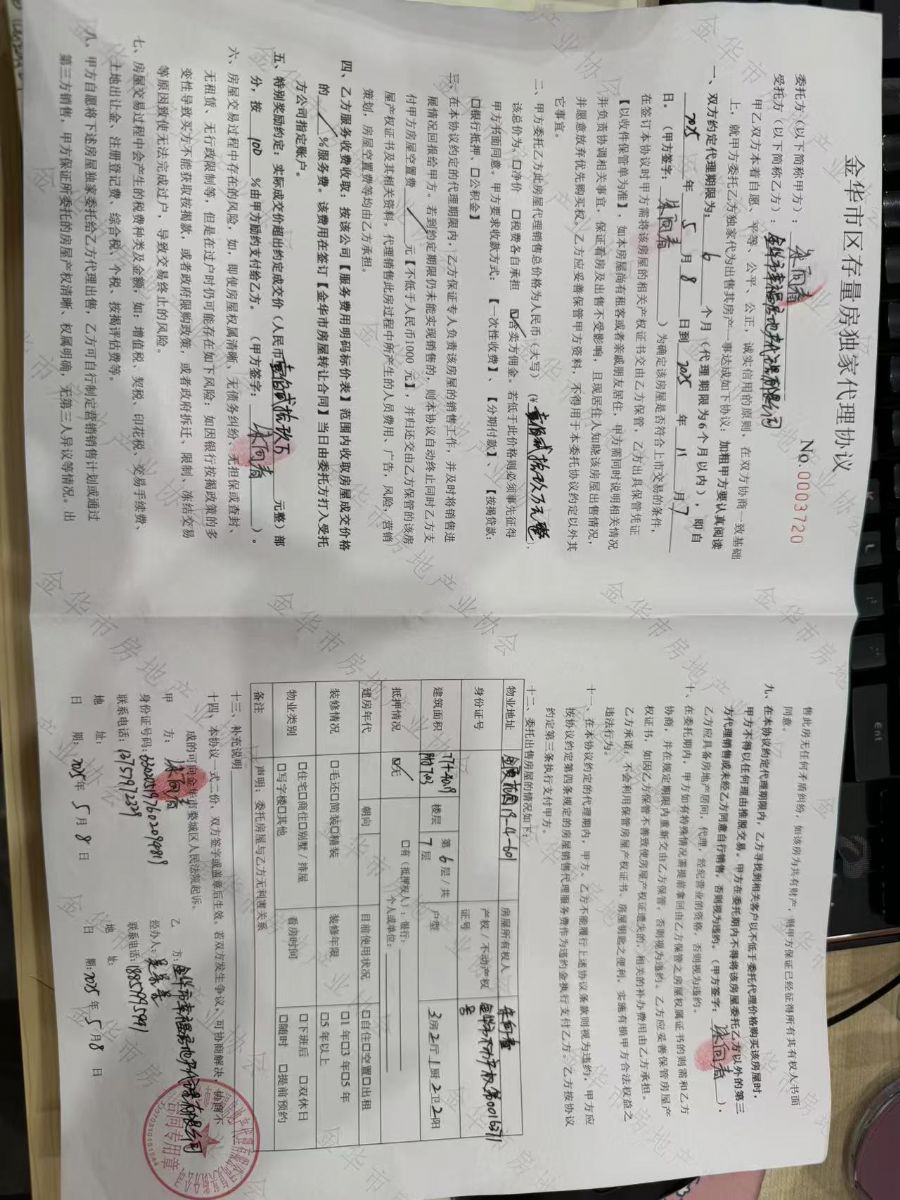 金华市区存量房独家代理协议
No.0003720
委托方(以下简称甲方):朱向春
受托方(以下简称乙方):
甲乙双方本着自愿、平等、公平、公正、诚实信用的原则,在双方协商一致基础
上,就甲方委托乙方独家代为出售其房产一事达成如下协议,加粗甲方要认真阅读
一、双方约定代理期限为:6个月(代理期限为6个月以内),即自
2025年5月8日到2025年11月7
日。(甲方签字:朱向春)
在签订本协议时甲方需将该房屋的相关产权证书交由乙方保管,乙方出具保管凭证
【以收件保管单为准】,如本房屋尚有租客或者亲戚朋友居住,甲方需同时说明相关情况
并负责协调相关事宜,保证看房及出售不受影响,且现居住人知晓该房屋出售情况,
并愿意放弃优先购买权。乙方应妥善保管甲方资料,不得用于本委托协议约定以外其
它事宜。
二、甲方委托乙方此房屋代理销售总价格为人民币(大写)(¥壹佰贰拾玖万元整),
该总价为:□净价 □税费各自承担 ☑含卖方佣金。若低于此价格则必须事先征得
甲方书面同意。甲方要求收款方式:【一次性收费】、【分期付款】、【按揭贷款:
□银行抵押、□公积金】
三、在本协议约定的代理期限内,乙方保证专人负责该房屋的销售工作,并及时将销售进
展情况回报给甲方。若到约定期限仍未能实现销售的,则本协议自动终止同时乙方支
付甲方房屋空置费/元【不低于人民币1000元】,并归还交由乙方保管的该房
屋产权证书及其相关资料。代理销售此房过程中所产生的人员费用、广告、风险、营销
策划、房屋空置费等均由乙方承担。
四、乙方服务收费收取:按该公司【服务费用明码标价表】范围内收取房屋成交价格
的/%服务费。该费用在签订【金华市房屋转让合同】当日由委托方打入受托
方公司指定账户。
五、特别奖励约定:实际成交价超出约定成交价(人民币壹佰贰拾玖万元整)部
分,按100%由甲方励约支付给乙方。(甲方签字:朱向春)。
六、房屋交易过程中存在的风险,如,即使房屋权属清晰、无债务纠纷、无担保或查封、
无租赁、无行政限制等,但是在过户时仍可能存在如下风险:如因银行按揭政策的多
变性导致买方不能获取按揭款,或者政府限购政策,或者政府拆迁、限制、冻结交易
等原因致使无法完成过户,导致交易终止的风险。
七、房屋交易过程中会产生的税费种类及金额,如:增值税、契税、印花税、交易手续费、
土地出让金、注册登记费、综合税、个税、按揭评估费等。
八、甲方自愿将下述房屋独家委托给乙方代理出售,乙方可自行制定营销销售计划或通过
第三方销售,甲方保证所委托的房屋产权清晰、权属明确,无第三人异议等情况。出
售此房无任何矛盾纠纷,如该房为共有财产,则甲方保证已经征得所有共有权人书面
同意。
九、在本协议约定代理期限内,乙方寻找到相关客户以不低于委托代理价格购买该房屋时,
甲方不得以任何理由推脱交易。甲方在委托期内不得将该房屋委托乙方以外的第三
方代理销售或未经乙方同意自行销售,否则视为违约。(甲方签字:朱向春),
乙方应具备房地产居间、代理、经纪营业的资格,否则视为违约。
十、在委托期内,甲方如有特殊情况需提前拿回由乙方保管之房屋权属证书的则需和乙方
协商,并在规定期限内重新交由乙方保管,否则视为违约。乙方应妥善保管房屋产
权证书,如因乙方保管不善致使房屋产权证遗失的,相关的补办费用由乙方承担。
乙方承诺:不会利用保管房屋产权证书、房屋钥匙之便利,实施有损甲方合法权益之
违法行为。
十一、在本协议约定的代理期内,甲方、乙方不能履行上述协议条款则视为违约,甲方应
按协议约定第四条规定的房屋销售代理服务费作为违约金执行支付乙方,乙方按协议
约定第三条执行支付甲方。
十二、委托出售房屋的情况如下:
物业地址 13-4-601 房屋所有权人 朱向春
身份证号 产权/不动产权证号
建筑面积 楼层 第6层/共7层 户型 3房2厅1厨2卫2阳
抵押情况 ☑无 □有(抵押权人):银行: 个人或单位:
建房年代 朝向 目前使用状况 □自住□空置□出租
装修情况 □毛坯□简装□精装 装修年限 □1年□3年□5年 □5年以上
物业类别 □住宅□商住□别墅/排屋 □写字楼□其他 看房时间 □下班后 □双休日 □随时 □提前预约
备注 声明:委托房屋与乙方无利害关系
十三、补充说明
十四、本协议一式二份,双方签字或盖章后生效。若双方发生争议,可协商解决,协商不
成的可向金华市婺城区人民法院起诉。
甲 方:朱向春 乙 方:
身份证号码: 经办人:
联系电话: 联系电话:
地 址: 地 址:
日 期:2025年5月8日 日 期:2025年5月8日
合同专用章